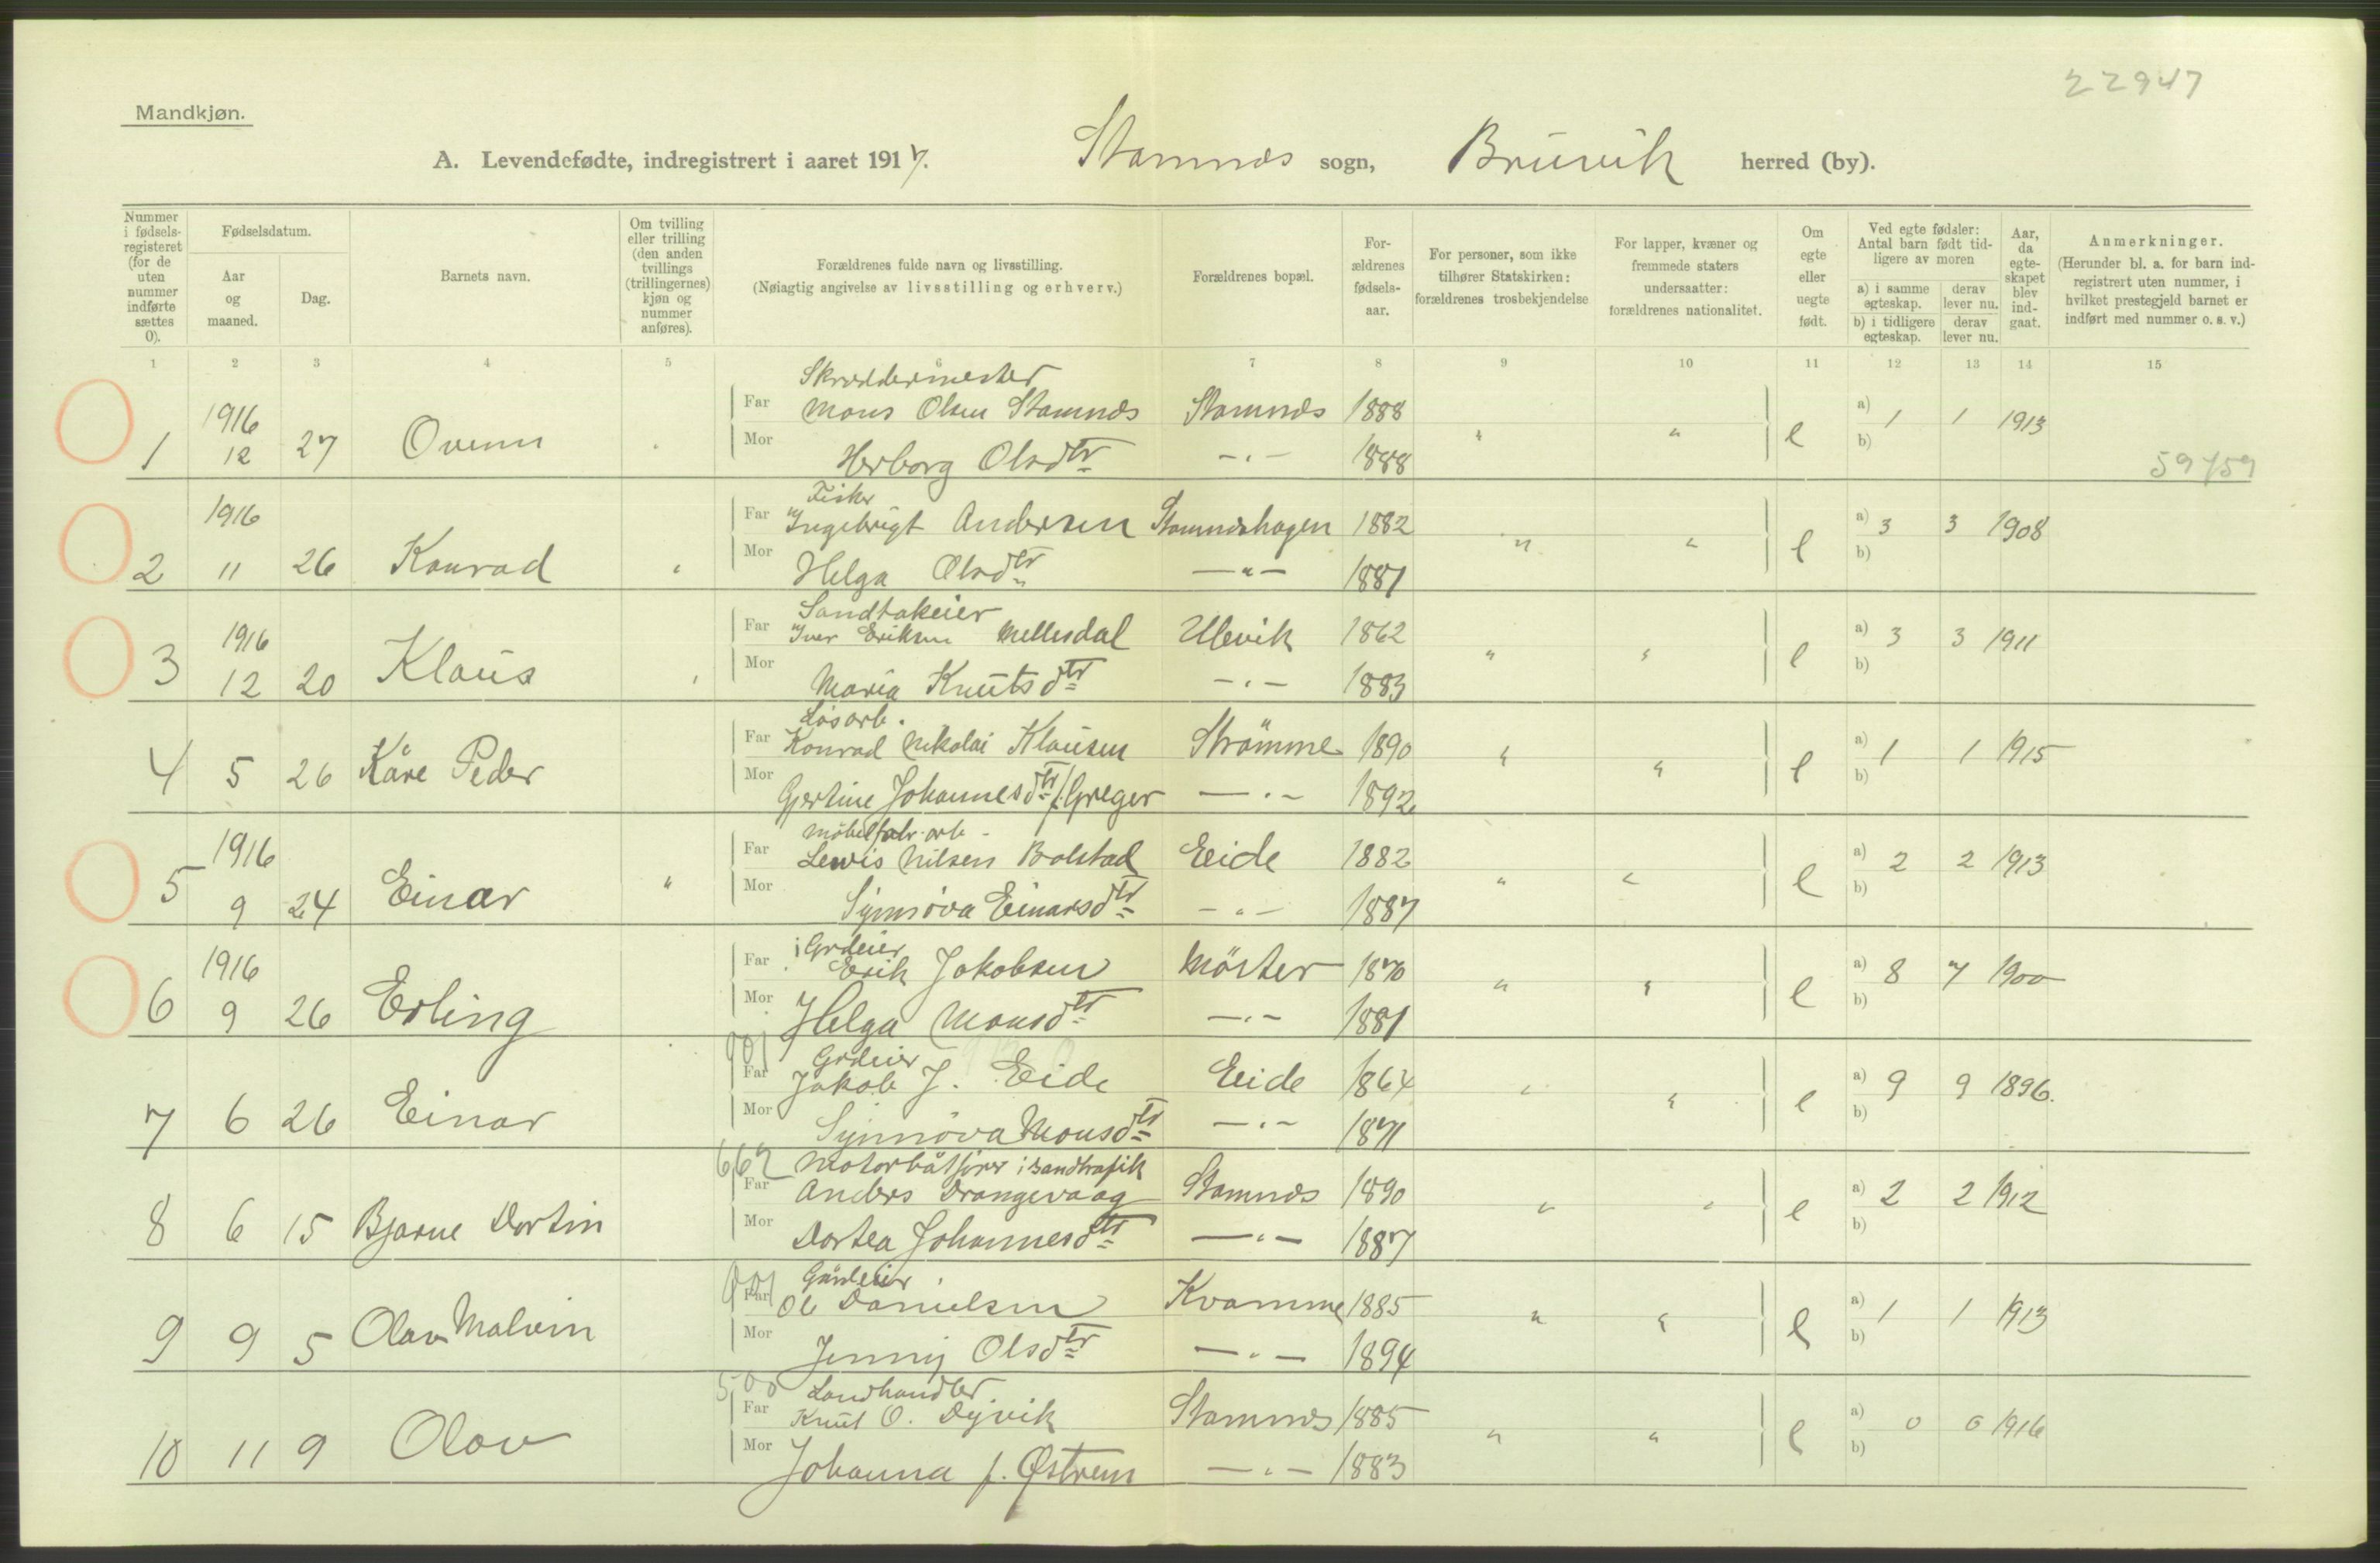 22947
Mandkjøn.
A. Levendefødte, indregistrert i aaret 1917. Stamnes sogn, Bruvik herred (by).
Nummer i fødsels-registeret (for de uten nummer indførte sættes 0).
Fødselsdatum.
Aar og maaned.
Dag.
Barnets navn.
Om tvilling eller trilling (den anden tvillings (trillingernes) kjøn og nummer anføres).
Forældrenes fulde navn og livsstilling.
(Nøiagtig angivelse av livsstilling og erhverv.)
Forældrenes bopæl.
For-ældrenes fødsels-aar.
For personer, som ikke tilhører Statskirken: forældrenes trosbekjendelse
For lapper, kvæner og fremmede staters undersaatter: forældrenes nationalitet.
Om egte eller uegte født.
Ved egte fødsler: Antal barn født tid-ligere av moren
a) i samme egteskap. derav lever nu.
b) i tidligere egteskap. derav lever nu.
Aar, da egte-skapet blev ind-gaat.
Anmerkninger.
(Herunder bl. a. for barn ind-registrert uten nummer, i hvilket prestegjeld barnet er indført med nummer o. s. v.)
1 2 3 4 5 6 7 8 9 10 11 12 13 14 15
Skræddermester
1916 Far Mons Olsen Stamnes Stamnes 1888 a) 1 1 1913
1 12 27 Mor Herborg Olsdtr -"- 1888 " " e b)
59759
Fisker
1916 Far Ingebrigt Andersen Stamneshagen 1882 a) 3 3 1908
2 11 26 Konrad " Mor Helga Olsdtr -"- 1881 " " e b)
Sandtakeier
1916 Far Iver Eriksen Mellesdal Ulevik 1862 a) 3 3 1911
3 12 20 Klaus " Mor Maria Knutsdtr -"- 1883 " " e b)
Løsarb.
Far Konrad Nikolai Klausen Strømme 1890 a) 1 1 1915
4 5 26 Kåre Peder Mor Gjertine Johannesdtr f. Greger -"- 1892 " " e b)
Møbelfabr. arb.
1916 Far Lewis Nilsen Bolstad Eide 1882 a) 2 2 1913
5 9 24 Einar " Mor Synnøva Einarsdtr -"- 1887 " " e b)
Grdeier
1916 Far Erik Jakobsen Møster 1870 a) 8 7 1900
6 9 26 Erling Mor Helga Monsdtr -"- 1881 " " e b)
001 Grdeier
Far Jakob J. Eide Eide 1864 a) 9 9 1896.
7 6 26 Einar Mor Synnøva Monsdtr -"- 1871 " " e b)
667 Motorbåtfører i sandtrafik
Far Anders Drangevaag Stamnes 1890 a) 2 2 1912
8 6 15 Bjarne Dortin Mor Dortea Johannesdtr -"- 1887 " " e b)
001 Gårdeier
Far Ole Danielsen Kvamme 1885 a) 1 1 1913
9 9 5 Olav Malvin Mor Jenny Olsdtr -"- 1894 " " e b)
500 Landhandler
Far Knut O. Dyvik Stamnes 1885 a) 0 0 1916
10 11 9 Olav Mor Johanna f. Østrem -"- 1883 " " e b)